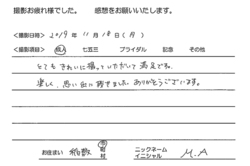 撮影お疲れ様でした。 感想をお願いいたします。
<撮影日時> 2019年 11月 18日(月)
<撮影項目> 成人 七五三 ブライダル 記念 その他
とてもきれいに撮っていただいて満足です。
楽しく、思い出に残りました。ありがとうございます。
お住まい 稲敷 市 町 村 ニックネーム イニシャル M.A